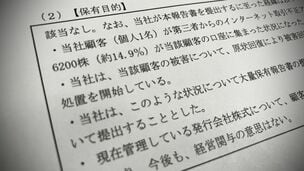 (2)【保有目的】
該当なし。なお、当社が本報告書を提出するに至った経緯は
・当社顧客（個人1名）が第三者からのインターネット取引不正
6200株（約14.9％）が当該顧客の口座に集まった状況にな
・当社は、当該顧客の被害について、原状回復により被害回
処置を開始している。
・当社は、このような状況について大量保有報告書の
いて提出することとした。
・現在管理している発行会社株式について、顧客
、今後も、経営関与の意思はない。